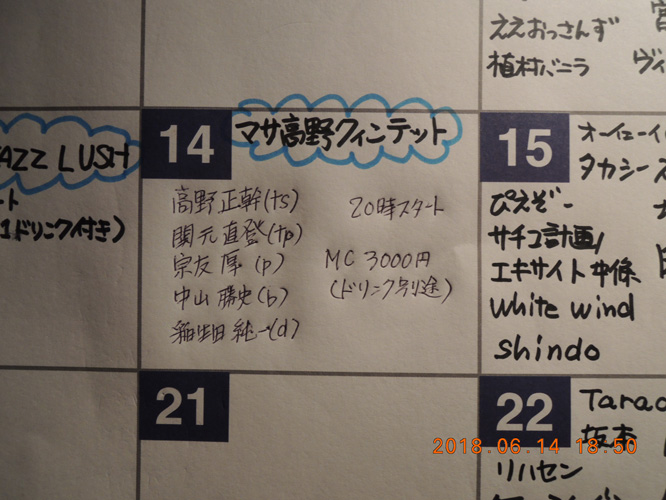 ええおっさんず
植村バニラ
ヴィ
14
マサ高野クィンテット
AZZ LUSH
ート
1ドリンク付き)
高野正幹(ts)
関元直登(tp)
宗友厚(p)
中山勝史(b)
稲生田純一(d)
20時スタート
MC 3000円
(ドリンク別途)
15
オーイェーイ
タカシー
ぴえぞー
サチコ計画
エキサイト中條
white wind
shindo
21
22
Tarao
坂本
リハセン
2018.06.14 18:50